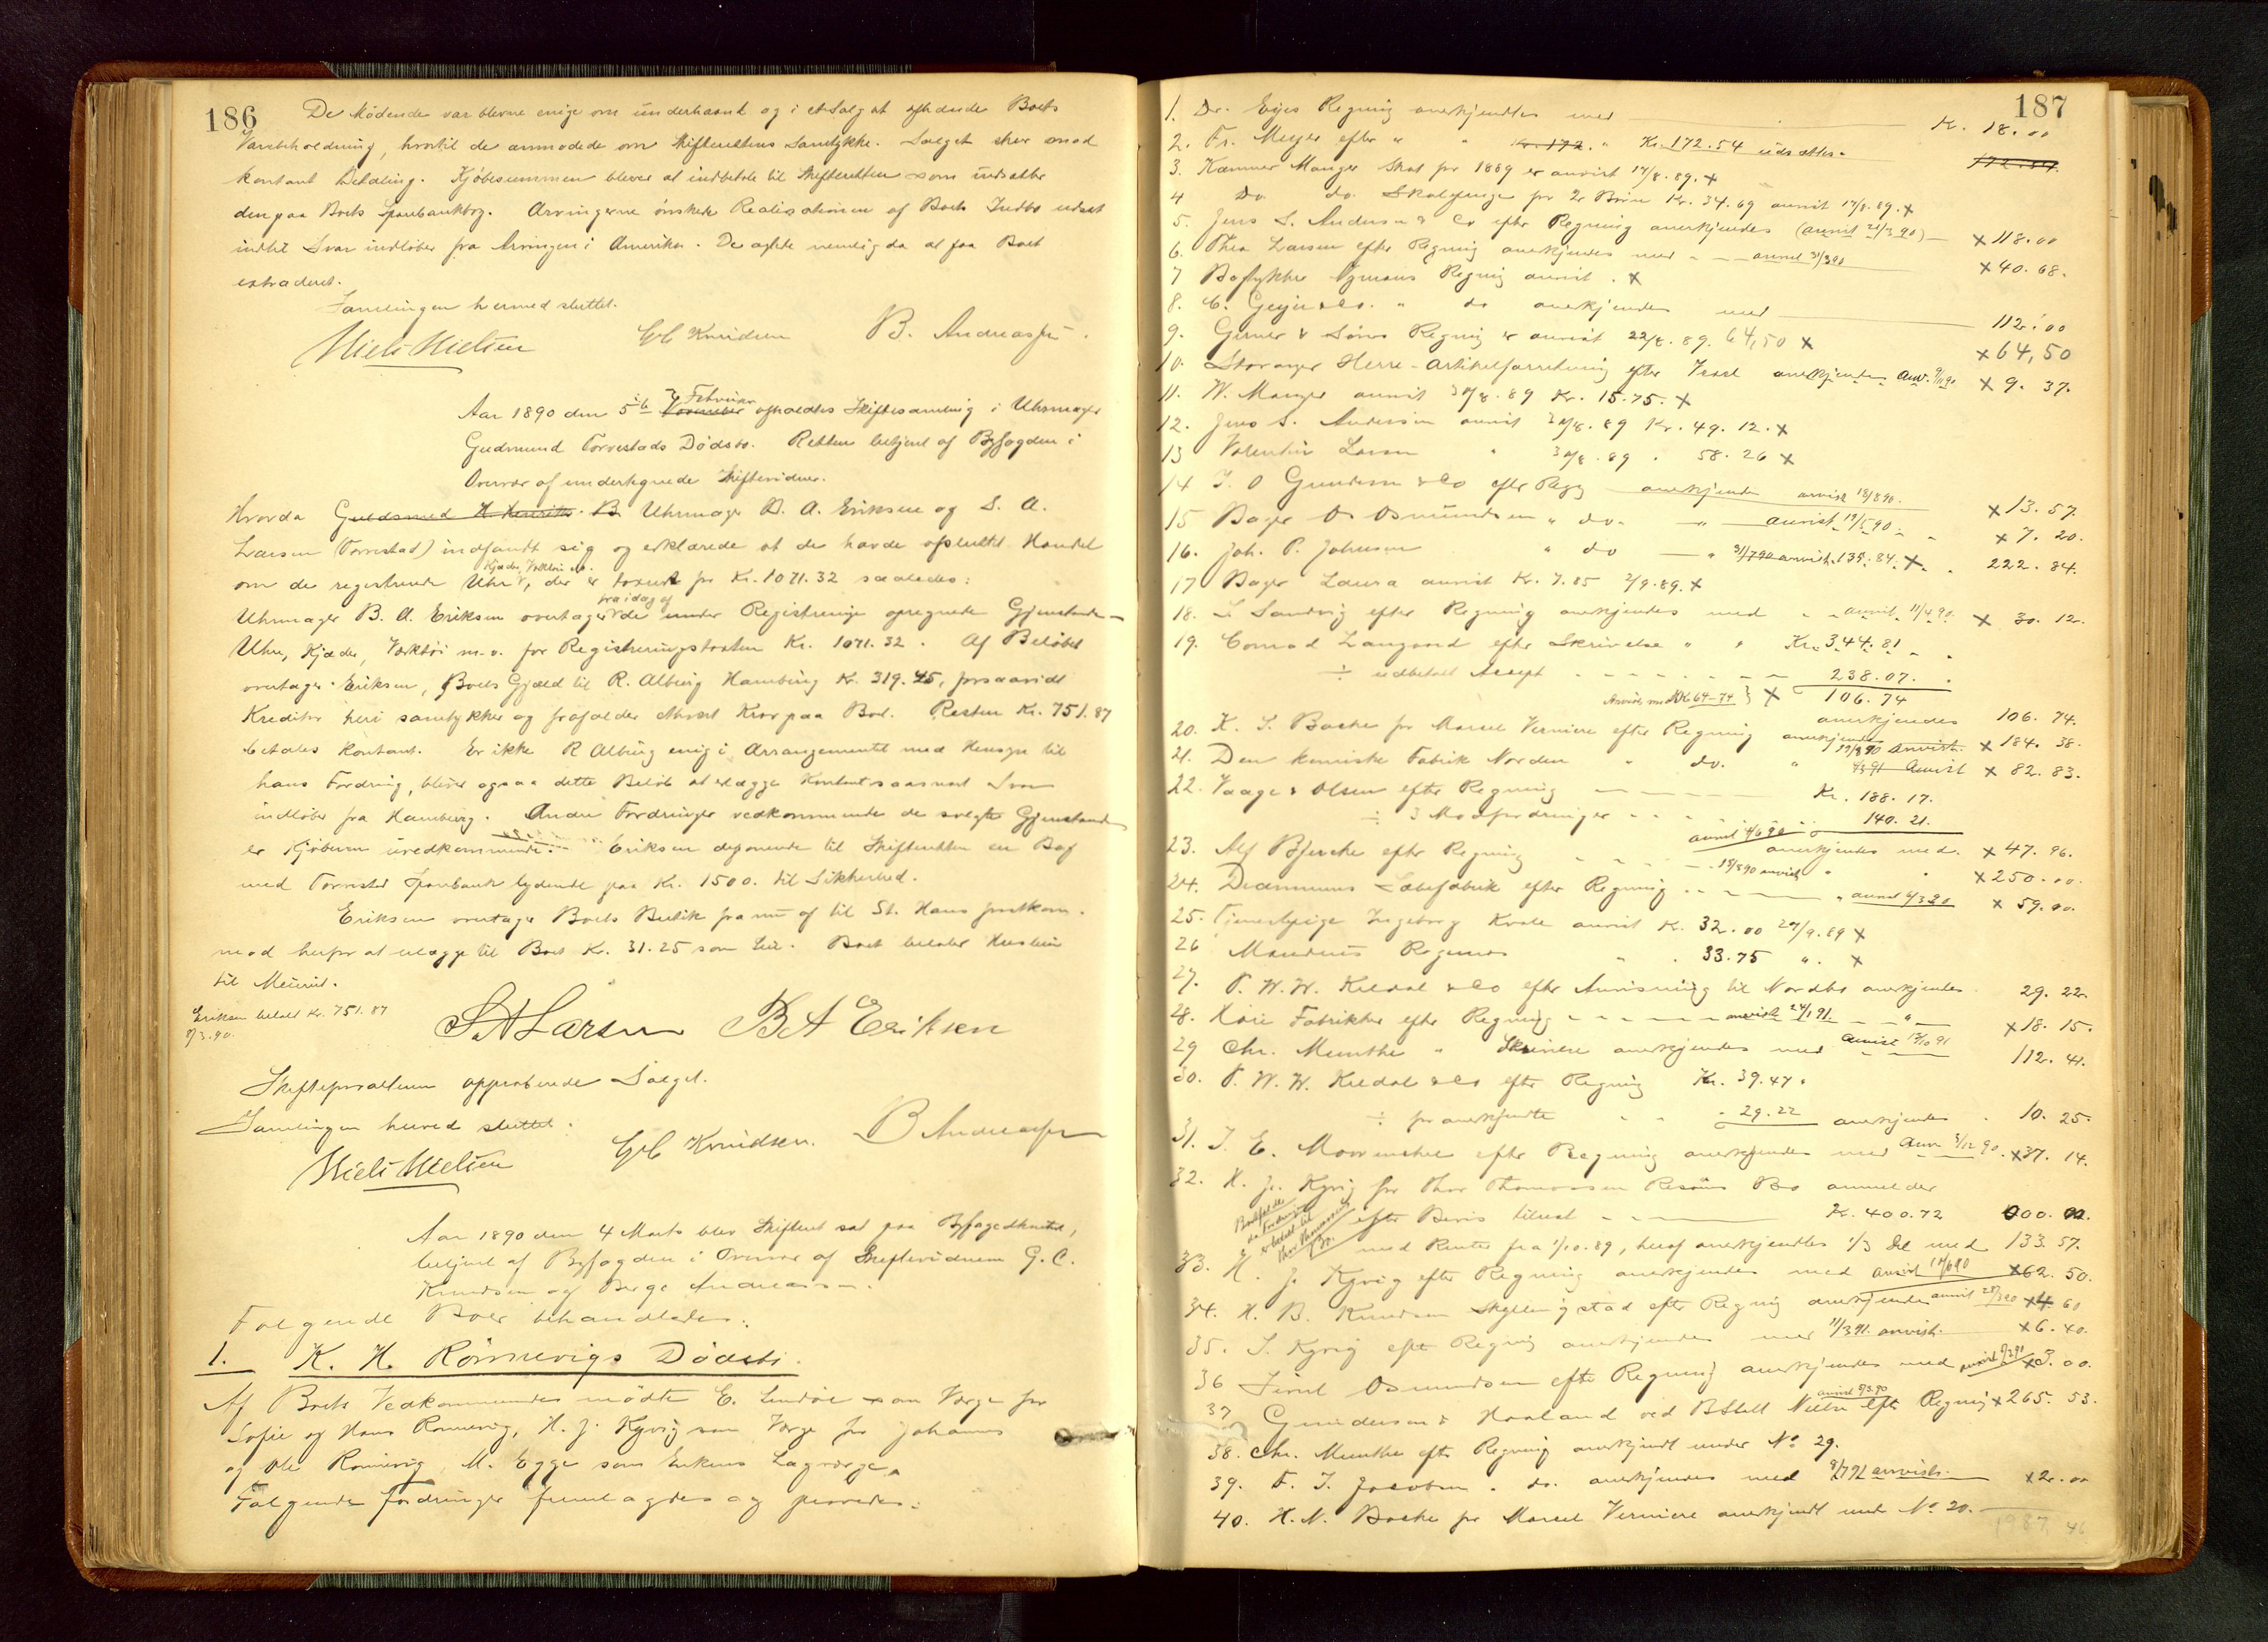 186
De Mødende var blevne enige om underhaand og i et Salg at afhænde Boets
Varebeholdning, hvortil de anmodede om Skifterettens Samtykke. Salget sker mod
kontant Betaling. Kjøbesummen bliver at indbetale til Skifteretten som indsætter
den paa Boets Sparebankbog. Arvingerne ønskede Realisationen af Boets Indbo udsat
indtil Svar indløber fra Arvingen i Amerika. De agtede nemlig da at faa Boet
extraderet.
Samlingen hermed sluttet.
Niels Nielsen GC Knudsen B. Andreassen.
Aar 1890 den 5te Februar afholdtes Skiftesamling i Uhrmager
Gudmund Torvestads Dødsbo. Retten betjent af Byfogden i
Overvær af undertegnede Skiftevidner.
Hvorda Guldsmed H. Henriks. B. Uhrmager B. A. Eriksen og S. A.
Larsen (Torvestad) indfandt sig og erklærede at de havde afsluttet Handel
om de registrerede Uhr, Kjæder, Værktøi etc. der er taxeret for Kr. 1071.32 saaledes:
Uhrmager B. A. Eriksen overtager fra idag af de under Registreringen opregnede Gjenstande -
Uhre, Kjæder, Værktøi m.v. for Registreringstaxten Kr. 1071.32. Af Beløbet
overtager Eriksen, Boets Gjæld til R. Alburg Hamburg Kr. 319.45, forsaavidt
Kreditor heri samtykker og frafalder ethvert Krav paa Boet. Resten Kr. 751.87
betales kontant. Er ikke R Alburg enig i Arrangementet med Hensyn til
hans Fordring, bliver ogsaa dette Beløb at erlægge kontant saasnart Svar
indløber fra Hamburg. Andre Fordringer vedkommende de solgte Gjenstande
er Kjøberen uvedkommende. Eriksen deponerede til Skifteretten en Bog
med Torvestad Sparebank lydende paa Kr. 1500. til Sikkerhed.
Eriksen overtager Boets Butik fra nu af til St. Hans førstkom.
mod herfor at erlægge til Boet Kr. 31.25 som Leie. Boet betaler Husleien
til
Eriksen betalt Kr. 751.87
8/3.90.
S A Larsen B A Eriksen
Skifteforvalteren approberede Salget.
Samlingen herved sluttet.
Niels Nielsen GC Knudsen. B Andreassen
Aar 1890 den 4 Marts blev Skifteret sat paa Byfogedkontoret,
betjent af Byfogden i Overvær af Skiftevidnerne G. C.
Knudsen og Berge Andreassen.
Følgende Boer behandledes:
1. K. H. Rönnevigs Dødsbo.
Af Boets Vedkommende mødte E. Lindøe som Værge for
Sofie og Hans Rønnevig, H. J. Kyvig som Værge for Johannes
og Ole Rönnevig, M. Egge som Enkens Lagværge.
Følgende Fordringer fremlagdes og prøvedes:
187
1. Dr. Eyes Regning anerkjendtes med Kr. 18.00
2. Fr. Meyer efter " " Kr. 172. " Kr. 172.54 udsættes. 172.54
3. Kæmner Manger Skat for 1889 er anvist 17/8.89. x
4 Do do. Skolepenge for 2 Børn Kr. 34.69 anvist 17/8.89. x
5. Jens S. Andersen & Co efter Regning anerkjendes (anvist 21/3 90) x 118.00
6. Thea Larsen efter Regning anerkjendes med anvist 31/3 90 x 40.68.
7 Bogtrykker Nymans Regning anvist. x
8. C. Geijer & Co. " do anerkjendes med 112.00
9. Gerner & Sörens Regning er anvist 22/8.89. 64,50 x x 64,50
10. Stavanger Herre-Artikelforretning efter anerkjendes Anv. 9/11 90 x 9.37.
11. W. Manger anvist 30/8.89 Kr. 15.75. x
12. Jens S. Andersen anvist 30/8.89 Kr. 49.12. x
13 Valentin Larsen " 30/8.89 . 58.26 x
14 J. O Gundersen & Co efter Regg anerkjendes anvist 18/8 90. x 13.57
15 Bager Os Osmundsen " do. " anvist 19/5 90 x 7.20.
16. Joh. P. Johnsen " do " 31/7 90 anvist 135.84. x 222.84.
17 Bager Laura anvist Kr. 7.85 2/9.89. x
18. S Sandvig efter Regning anerkjendes med anvist 11/4 90. x 30.12.
19. Conrad Langaard efter Skrivelse " " Kr. 344.81
÷ udbetalt Accept 238.07.
106.74
anerkjendes 106.74.
20. K. S. Backe for Marcel Verniere efter Regning anerkjendes 19/8 90 anvist. x 184.38.
21. Den kemiske Fabrik Norden " do. " 4/3 91 Anvist x 82.83.
22. Vaage & Olsen efter Regning Kr. 188.17.
÷ 3 Modfordringer 140.21.
anvist 4/6 90 anerkjendes med. x 47.96.
23. Alf Bjercke efter Regning 18/8 90 anvist " x 250.00.
24. Drammens Sæbefabrik efter Regning " anvist 6/3 90 x 59.00.
25. Tjenestepige Ingeborg Kvale anvist Kr. 32.00 24/9.89 x
26 Mandrup Rogenæs " . 33.75 ". x
27. P. W. W. Kildal & Co efter Anvisning til Nordbø anerkjendes 29.22
28. Køie Fabrikker efter Regning anvist 24/1 91. " x 18.15.
29 Chr. Munthe " Skrivelse anerkjendes med Anvist 13/10 91 112.41.
30. P. W. W. Kildal & Co efter Regning Kr. 39.47.
÷ før anerkjendte 29.22 anerkjendes . 10.25.
31. J. E. efter Regning anerkjendes med Anv 3/12 90. x 37.14.
32. H. J. Kyvig for Thor Thomassen Bo anmelder
efter Bevis tilsendt Kr. 400.72
med Renter fra 1/10.89, heraf anerkjendtes 1/3 Del med 133.57.
33. H. J. Kyvig efter Regning anerkjendes med anvist 10/6 90 x 62.50.
34. H. B. Knudsen Skjellingstad efter Regning anerkjendes anvist 28/3 90 x 4.60
35. S. Kyvig efter Regning anerkjendes med 11/3 91. anvist. x 6.40.
36 Osmundsen efter Regning anerkjendes med anvist x 3.00.
37 Gundersen & Haaland ved B Stell Nielsen efter Regning x 265.53.
38. Chr. Munthe efter Regning anerkjendt under No 29.
39. F. J. Jacobsen " do. anerkjendes med 8/7 91 anvist. x 2.00
40. H. N. Backe for Marcel Verniere anerkjendt under No 20.
1987.46